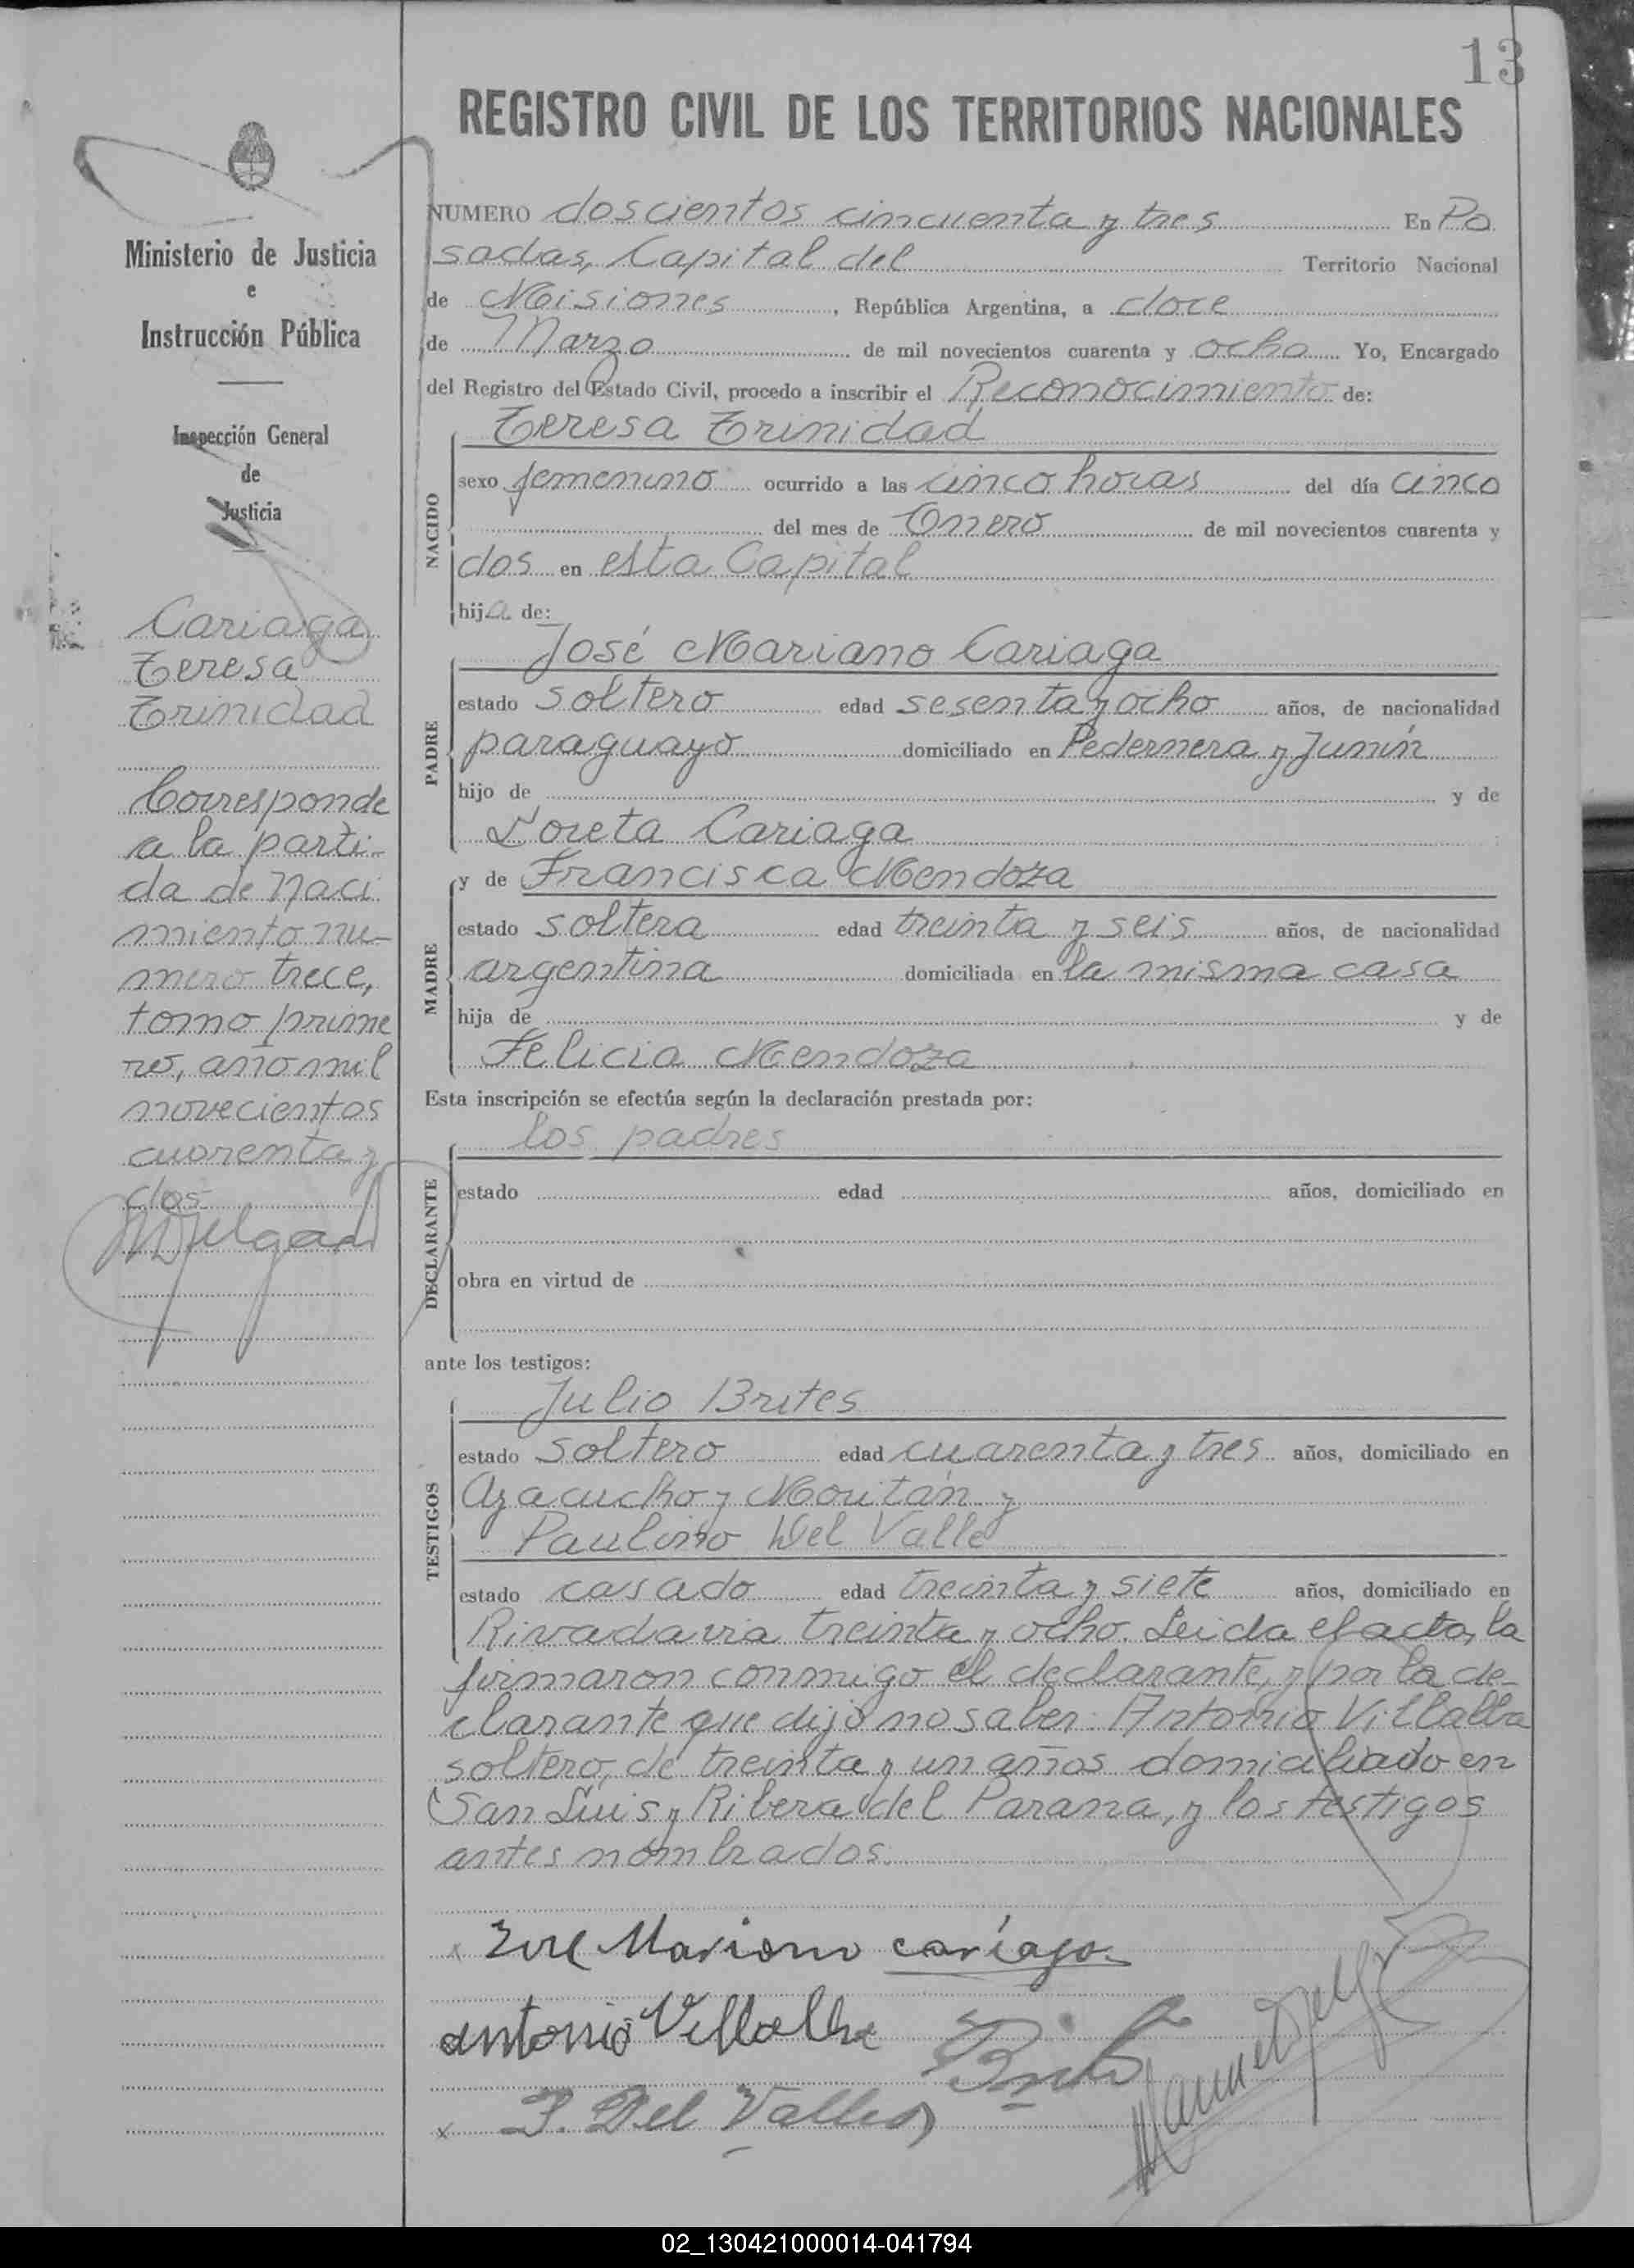 13
REGISTRO CIVIL DE LOS TERRITORIOS NACIONALES
Ministerio de Justicia
e
Instrucción Pública
Inspección General
de
Justicia
Cariaga
Teresa
Trinidad
Corresponde
a la parti-
da de Naci
miento nu-
mero trece,
tomo prime
ro, año mil
novecientos
cuarenta y
dos
NUMERO doscientos cincuenta y tres En Po
sadas, Capital del Territorio Nacional
de Misiones, República Argentina, a doce
de Marzo de mil novecientos cuarenta y ocho Yo, Encargado
del Registro del Estado Civil, procedo a inscribir el Reconocimiento de:
NACIDO
Teresa Trinidad
sexo femenino ocurrido a las cinco horas del día cinco
del mes de Enero de mil novecientos cuarenta y
dos en esta Capital
hija de:
PADRE
José Mariano Cariaga
estado soltero edad sesenta y ocho años, de nacionalidad
paraguayo domiciliado en Pedernera y Junín
hijo de y de
Loreta Cariaga
MADRE
y de Francisca Mendoza
estado soltera edad treinta y seis años, de nacionalidad
argentina domiciliada en la misma casa
hija de y de
Felicia Mendoza
Esta inscripción se efectúa según la declaración prestada por:
DECLARANTE
los padres
estado edad años, domiciliado en
obra en virtud de
ante los testigos:
TESTIGOS
Julio Brites
estado soltero edad cuarenta y tres años, domiciliado en
Ayacucho y Moritán y
Paulino Del Valle
estado casado edad treinta y siete años, domiciliado en
Rivadavia treinta y ocho. Leida el acta, la
firmaron conmigo el declarante, y por la de-
clarante que dijo no saber: Antonio Villalba
soltero, de treinta y un años domiciliado en
San Luis y Ribera del Parana, y los testigos
antes nombrados.
x José Mariano cariaga
antonio Villalba
x P. Del Valle
02_130421000014-041794